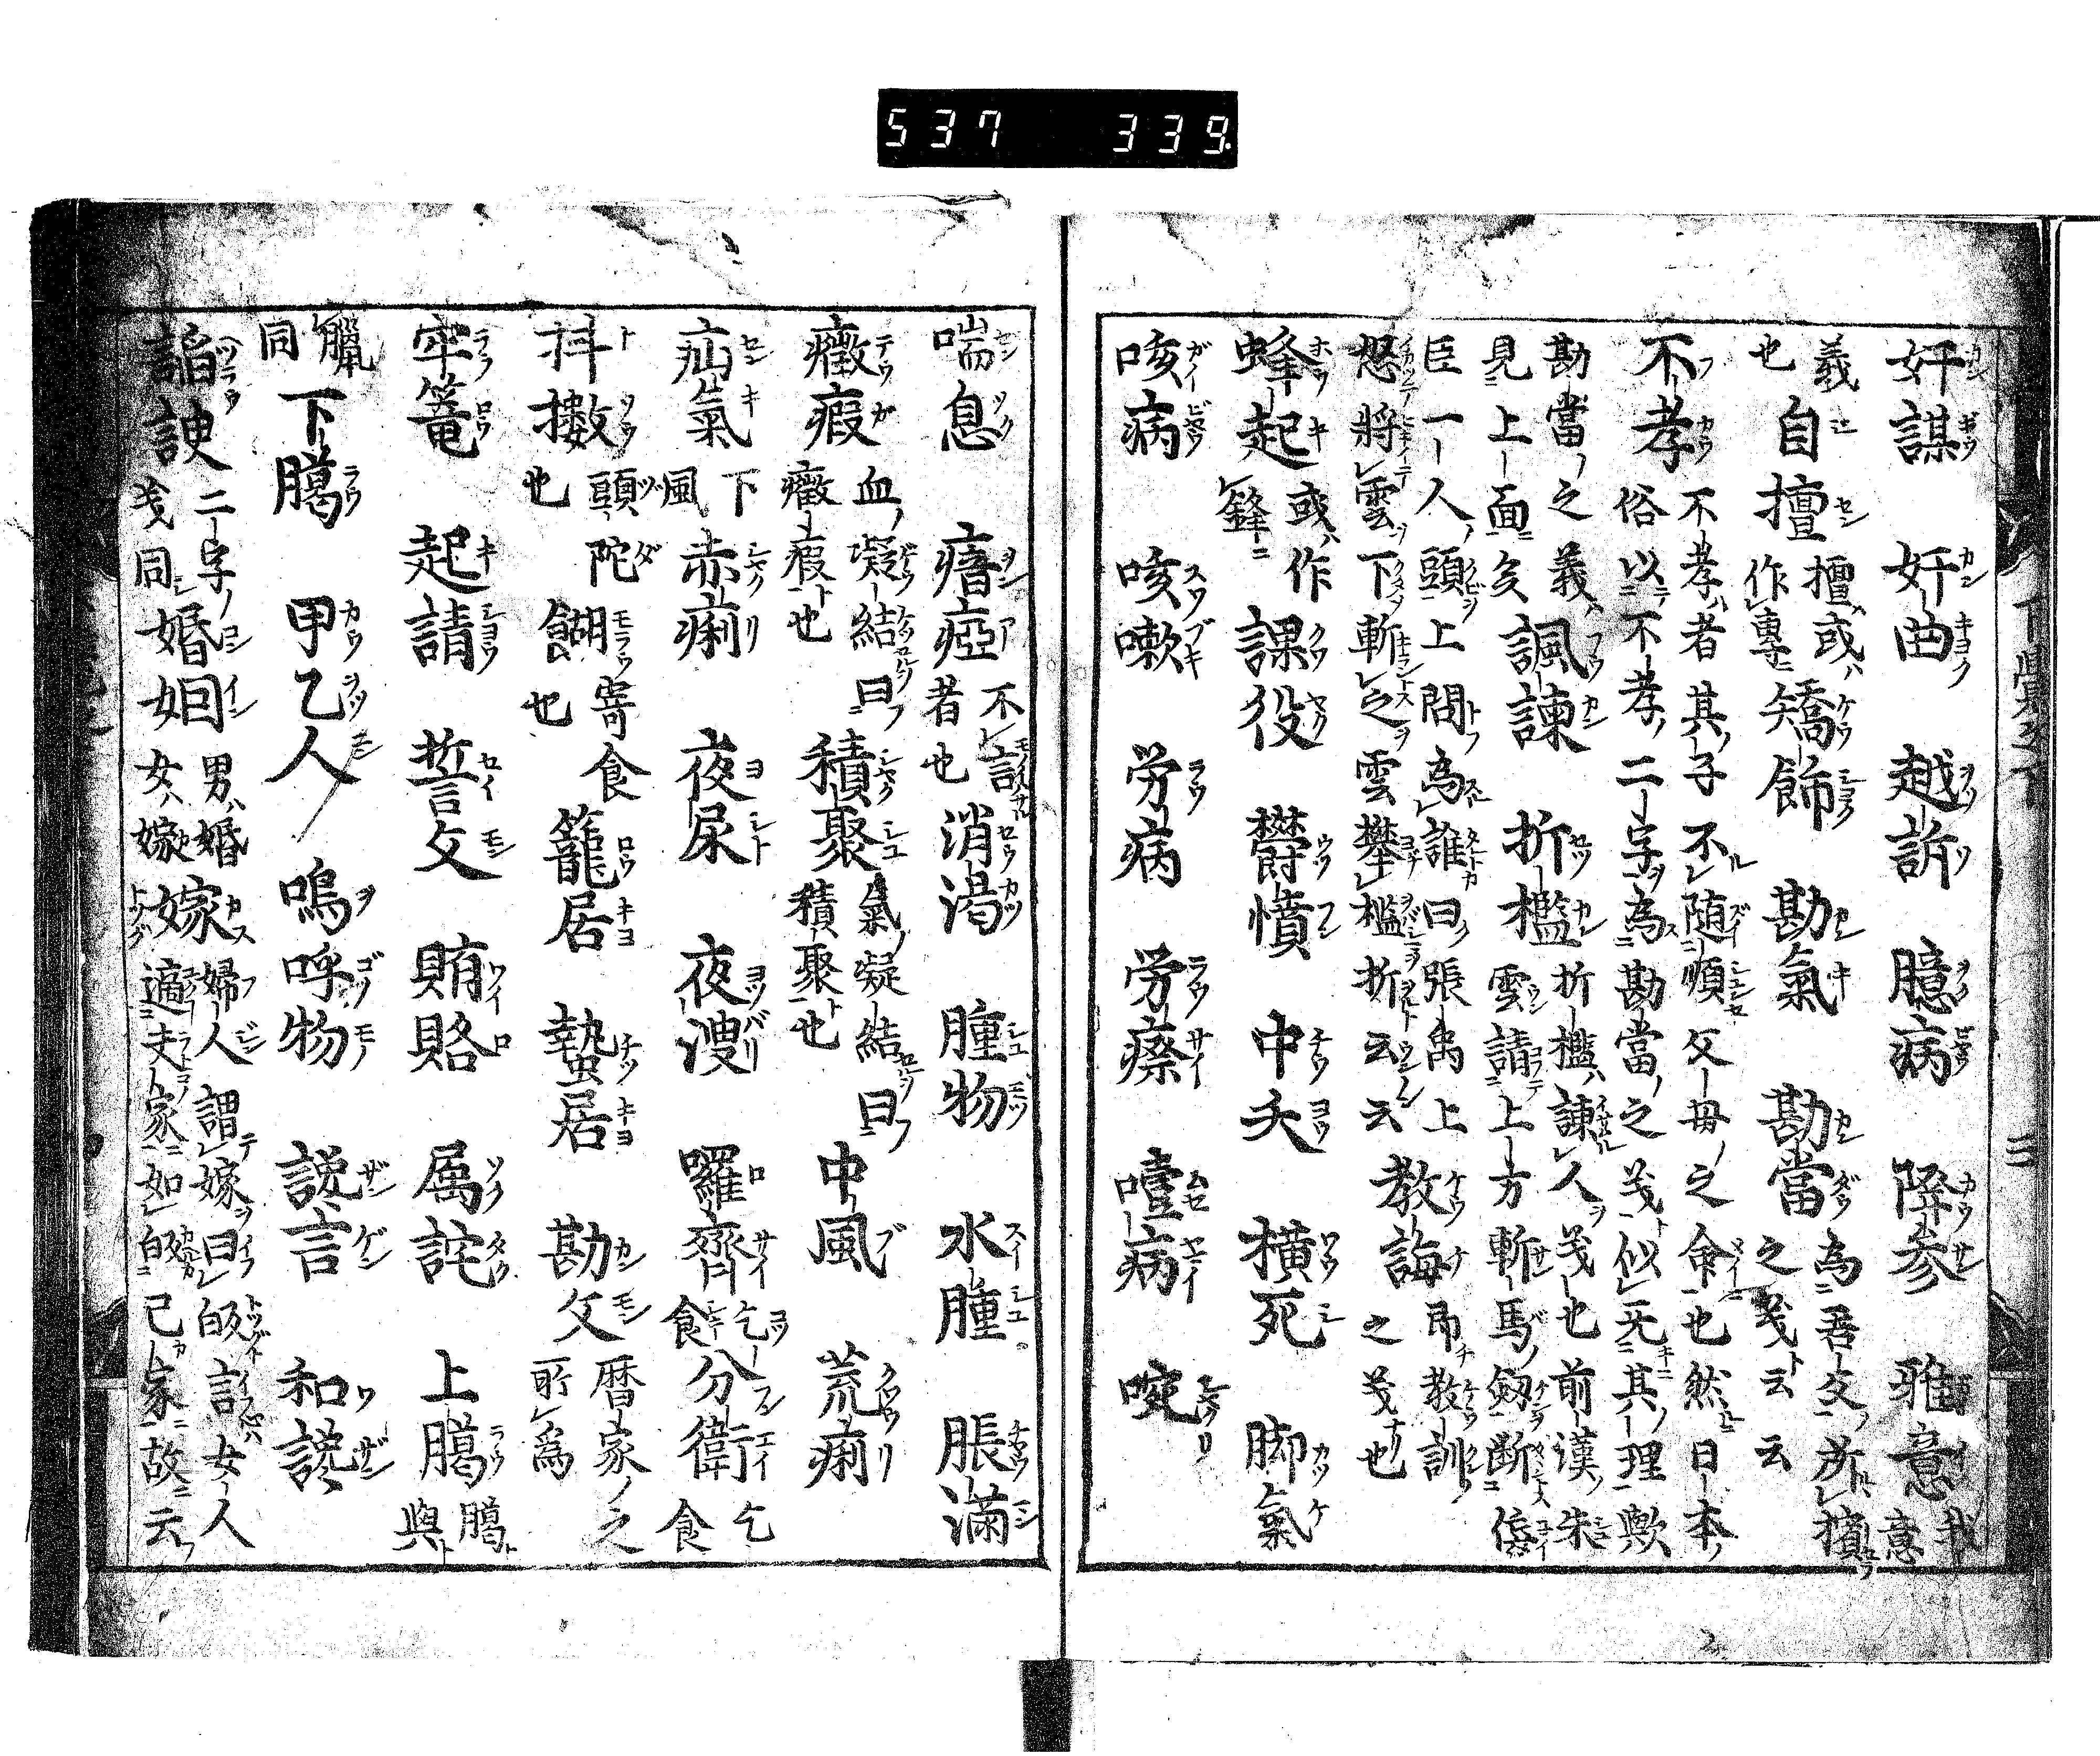 537 339
奸謀 奸曲 越訴 臆病 降参 雅意 我意
義也 自擅 擅或作專 矯飾 勘氣 勘當 為吾父所擯之義云云
不孝 不孝者其子不随順父母之命也然日本俗以不孝二字為勘當之義似无其理歟
勘當之義 諷諫 折檻 折檻諫人義也前漢朱雲請上方斬馬劔断佞
臣一人頭上問為誰曰張禹上怒将雲下斬之雲攀檻折云云 教誨 即教訓之義也
蜂起 或作鋒 課役 欝憤 中夭 横死 脚氣
咳病 咳嗽 労病 労瘵 噎病 啶
喘息 瘖瘂 不言者也 消渇 腫物 水腫 脹滿
癥瘕 血凝結曰癥瘕也 積聚 氣凝結曰積聚也 中風 荒痢
疝氣 下風 赤痢 夜尿 夜溲 囉齋 乞食 分衛 乞食
抖擻 頭陀也 餬 寄食也 籠居 蟄居 勘文 暦家之所為
牢篭 起請 誓文 賄賂 属詫 上臈 臈與
臘同 下臈 甲乙人 嗚呼物 讒言 和讒
諂諛 二字義同 婚姻 男婚女嫁 嫁 婦人謂嫁曰皈言女人適夫家如皈己家故云